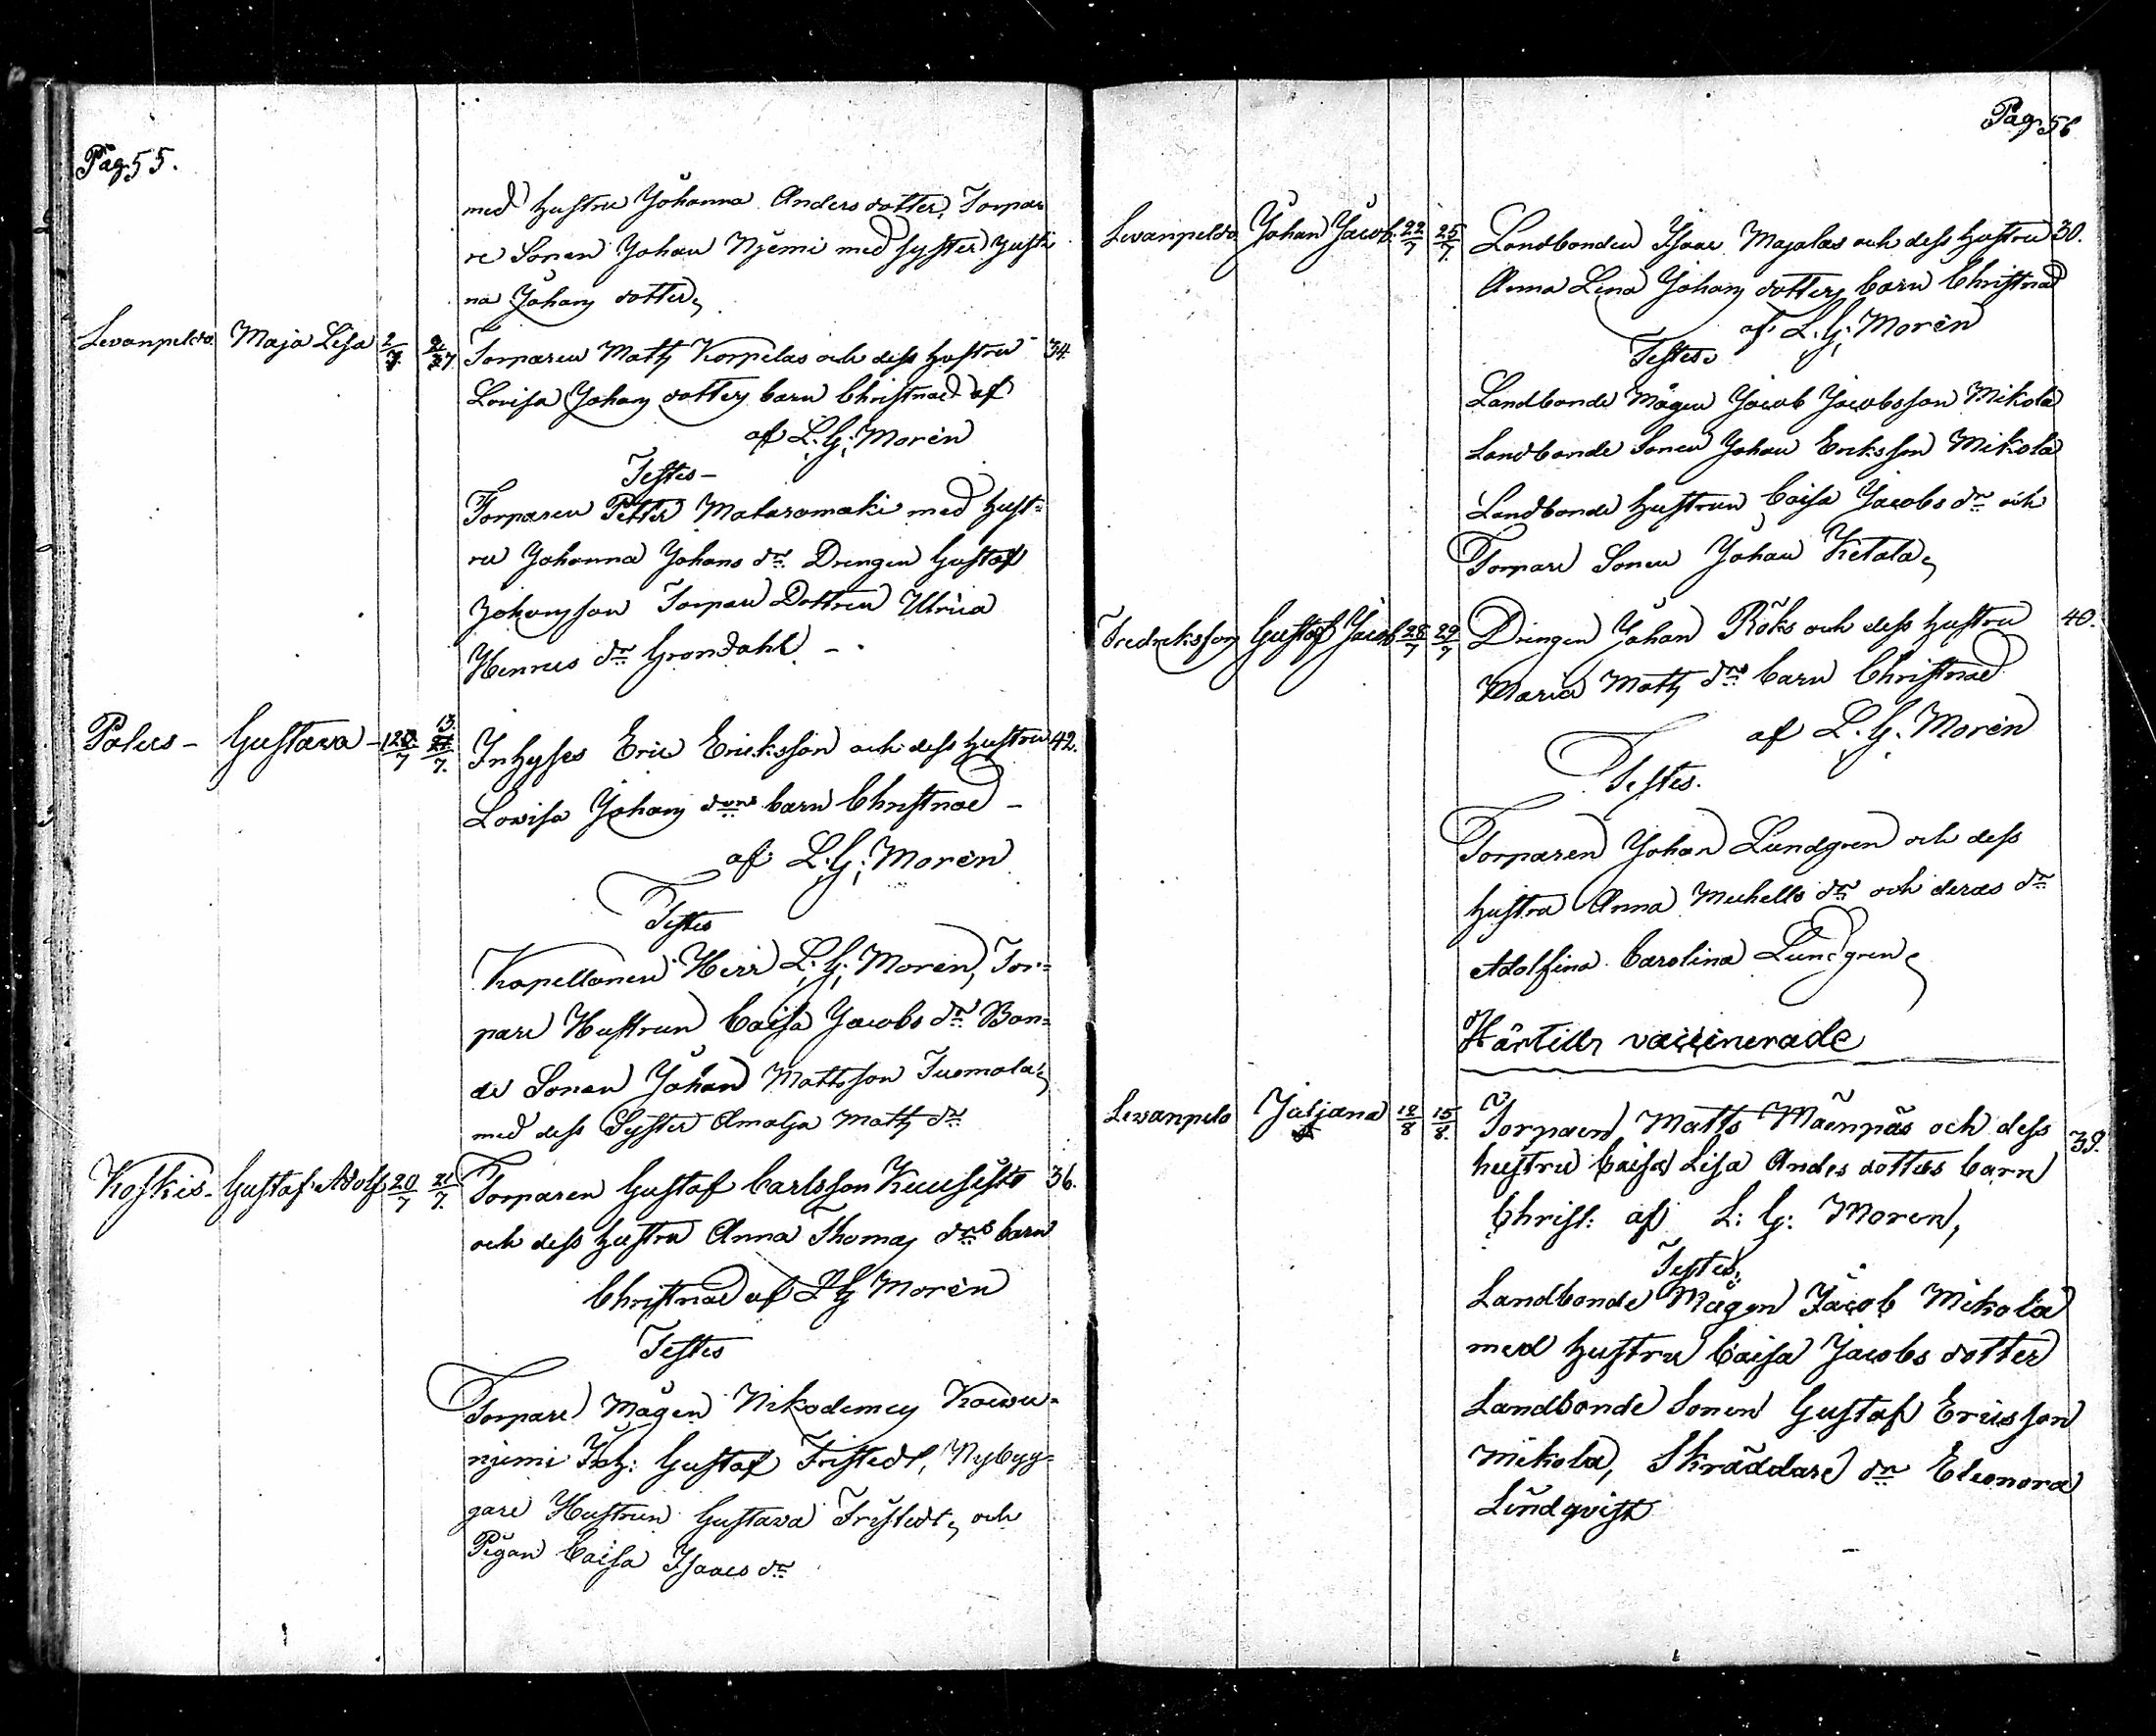 Pag 55.
med hustru Johanna Andersdotter, Torpa
re Sonen Johan Njemi med syster Justi
na Johans dotter,
Levanpelto. Maja Lisa 2/7. 2/7. Torparen Matts Korpelas och dess hustru 34
Lovisa Johans dotters barn Christnad af
af L. G. Morèn
Testes -
Torparen Petter Matasomaki med hust=
ru Johanna Johans dr. Drengen Gustaf
Johansson Torpare Dottren Ulrica
Henrics dr Grondahl. -
Palus - Gustava - 12/7 13/7. Inhyses Eric Ericksson och dess hustru 42.
Lovisa Johans drs barn Christnad -
af L. G. Morèn
Testes
Kapellanen Herr L. G. Moren, Tor=
pare Hustrun Caisa Jacobs dr Bon=
de Sonen Johan Mattsson Tuomola,
med dess Syster Amalja Matts dr
Koskis - Gustaf Adolf 20/7 21/7. Torparen Gustaf Carlsson Kuusisto 36.
och dess hustru Anna Thomas drs barn
Christnad af L G Morèn
Testes
Torpare Mågen Nikodemus Koivu-
njemi Gustaf Fristedt, Nybyg=
gare Hustrun Gustava Fristedt, och
Pigan Caisa Isaacs dr
Pag. 56
Levanpelto. Johan Jacob. 22/7 25/7. Landbonden Isaac Majalas och dess hustru 30.
Anna Lena Johans dotters barn Christnad
af L. G. Morèn
Testes
Landbonde Mågen Jacob Jacobsson Mikola
Landbonde Sonen Johan Ericksson Mikola
Landbonde hustrun Caisa Jacobs dr och
Torpare Sonen Johan Ketala,
Fredriksson Gustaf Jacob 28/7 29/7 Drengen Johan Röks och dess hustru 40.
Maria Matts drs barn Christnad
af L. G. Morèn
Testes.
Torparen Johan Lundgren och dess
hustru Anna Michells dr och deras dr
Adolfina Carolina Lundgren,
Härtills vaccinerade
Levanpelo Juljana 12/8 15/8. Torparen Matts Mäenpäs och dess 39.
hustru Caisa Lisa Anders dotters barn
Christ: af L: G: Moren,
Testes,
Landbonde Mågen Jacob Mikola
med hustru Caisa Jacobs dotter
Landbonde Sonen Gustaf Ericsson
Mikola, Skräddare dr Eleonora
Lindqvist